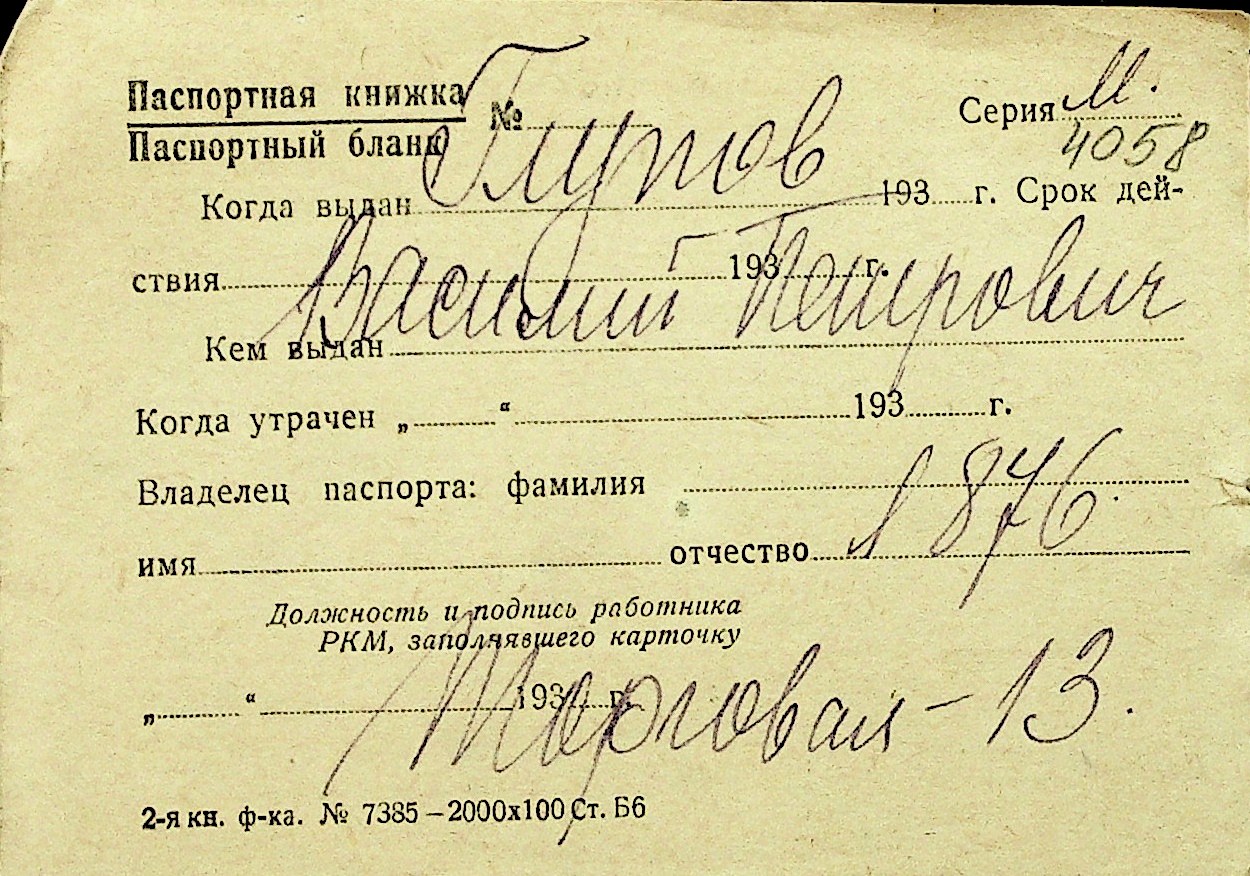 Паспортная книжка
Паспортный бланк № Серия М.
4058
Глупов
Когда выдан 193 г. Срок дей-
ствия 193 г.
Василий Петрович
Кем выдан
Когда утрачен „ “ 193 г.
Владелец паспорта: фамилия
1876.
имя отчество
Должность и подпись работника
РКМ, заполнявшего карточку
„ “ 193 г.
Торговая – 13.
2-я кн. ф-ка. № 7385 – 2000х100 Ст. Б6